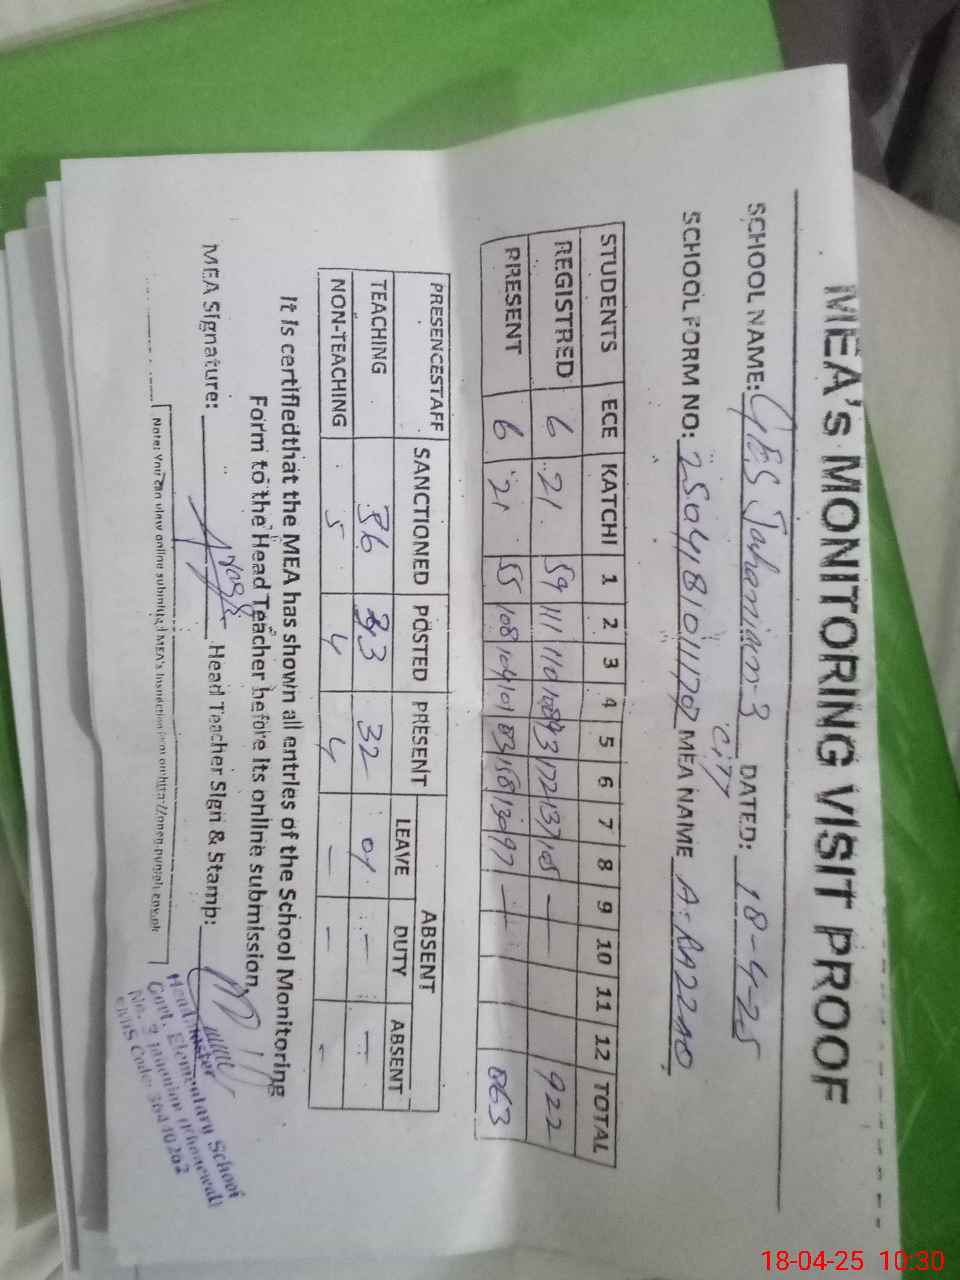 MEA's MONITORING VISIT PROOF
SCHOOL NAME: GES Jahanian-3 DATED: 18-4-25
City
SCHOOL FORM NO: MEA NAME
STUDENTS ECE KATCHI 1 2 3 4 5 6 7 8 9 10 11 12 TOTAL
REGISTRED 6 21 59 111 110 108 93 172 137 105 — — 922
PRESENT 6 21 55 108 104 101 83 158 130 97 — — 863
PRESENCESTAFF SANCTIONED POSTED PRESENT ABSENT
LEAVE DUTY ABSENT
TEACHING 36 33 32 01 — —
NON-TEACHING 5 4 4 — — —
It is certifiedthat the MEA has shown all entries of the School Monitoring
Form to the Head Teacher before its online submission.
MEA Signature: Head Teacher Sign & Stamp:
Headmaster
Govt. Elementary School
No. 3 Jahanian (Khanewal)
EMIS Code:
Note: You can view online submitted MEA's Inspection form on http://open.punjab.gov.pk
18-04-25 10:30